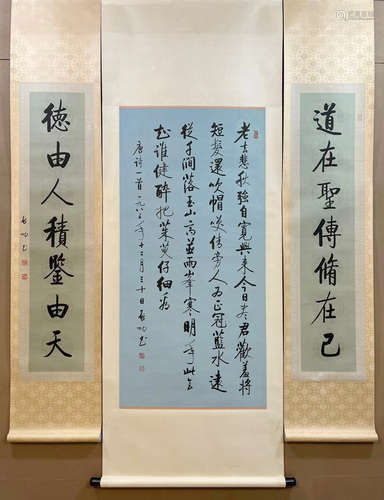 道在聖傳脩在己
老去悲秋強自寬興來今日尽君歡羞將
短髮還吹帽笑倩旁人为正冠藍水遠
從千澗落玉山高並兩峯寒明年此会
知誰健醉把茱萸仔細看
唐詩一首一九八五年十二月三十日启功书
德由人積鑒由天
启功书